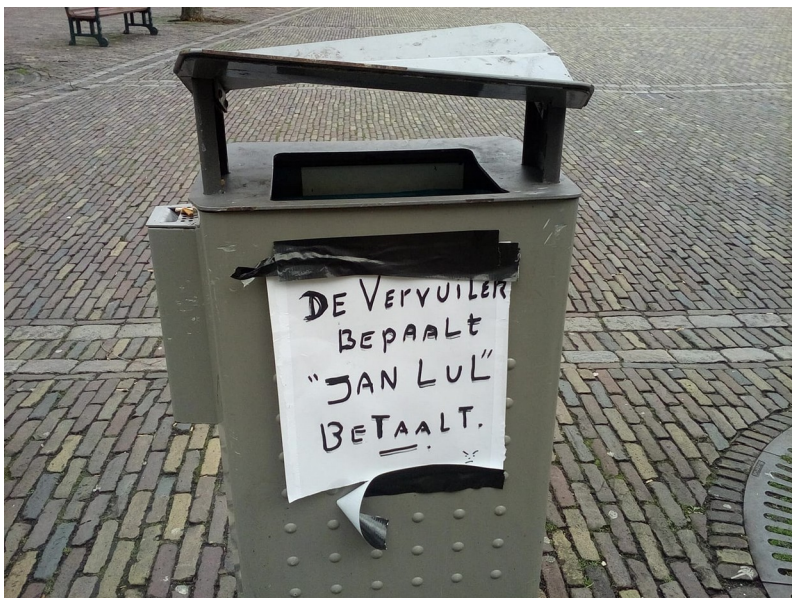 DE VERVUILER
BEPAALT
"JAN LUL"
BETAALT.